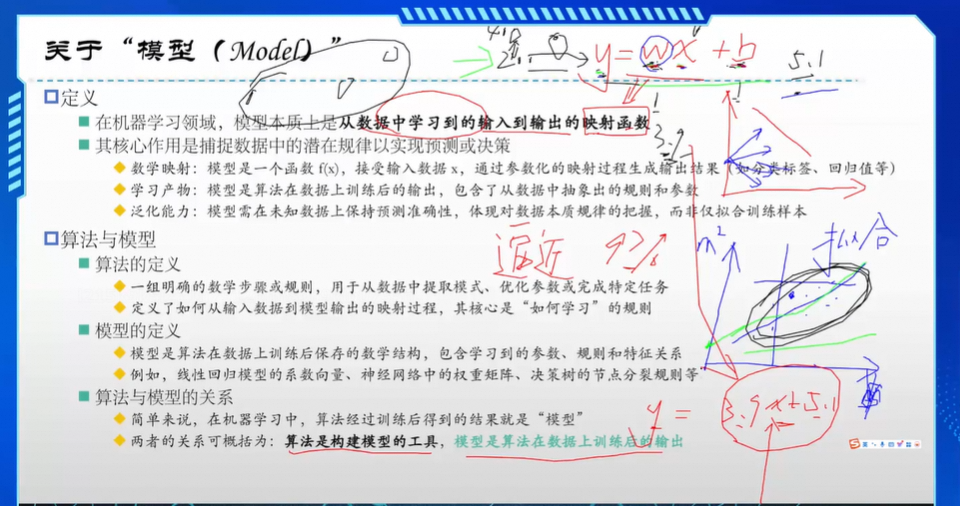 关于“模型（Model）”
y = wx + b
5.1
定义
在机器学习领域，模型本质上是从数据中学习到的输入到输出的映射函数
其核心作用是捕捉数据中的潜在规律以实现预测或决策
数学映射：模型是一个函数 f(x)，接受输入数据 x，通过参数化的映射过程生成输出结果（如分类标签、回归值等）
学习产物：模型是算法在数据上训练后的输出，包含了从数据中抽象出的规则和参数
泛化能力：模型需在未知数据上保持预测准确性，体现对数据本质规律的把握，而非仅拟合训练样本
逼近
m²
拟合
算法与模型
算法的定义
一组明确的数学步骤或规则，用于从数据中提取模式、优化参数或完成特定任务
定义了如何从输入数据到模型输出的映射过程，其核心是“如何学习”的规则
模型的定义
模型是算法在数据上训练后保存的数学结构，包含学习到的参数、规则和特征关系
例如，线性回归模型的系数向量、神经网络中的权重矩阵、决策树的节点分裂规则等
算法与模型的关系
简单来说，在机器学习中，算法经过训练后得到的结果就是“模型”
y = 3.9x+5.1
两者的关系可概括为：算法是构建模型的工具，模型是算法在数据上训练后的输出